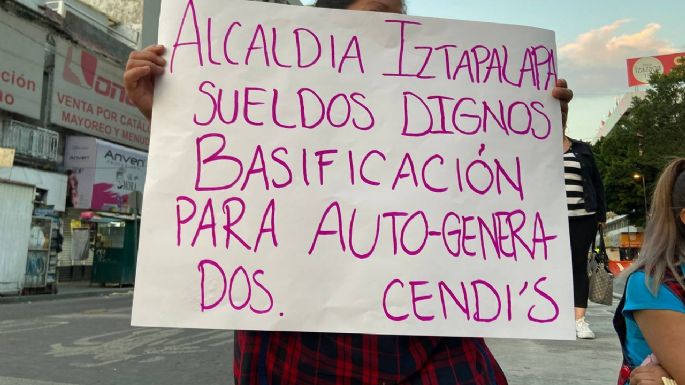 ALCALDIA IZTAPALAPA
SUELDOS DIGNOS
BASIFICACIÓN
PARA AUTO-GENERA-
DOS. CENDI'S
VENTA POR CATÁLOGO
MAYOREO Y MENUDEO
Anven